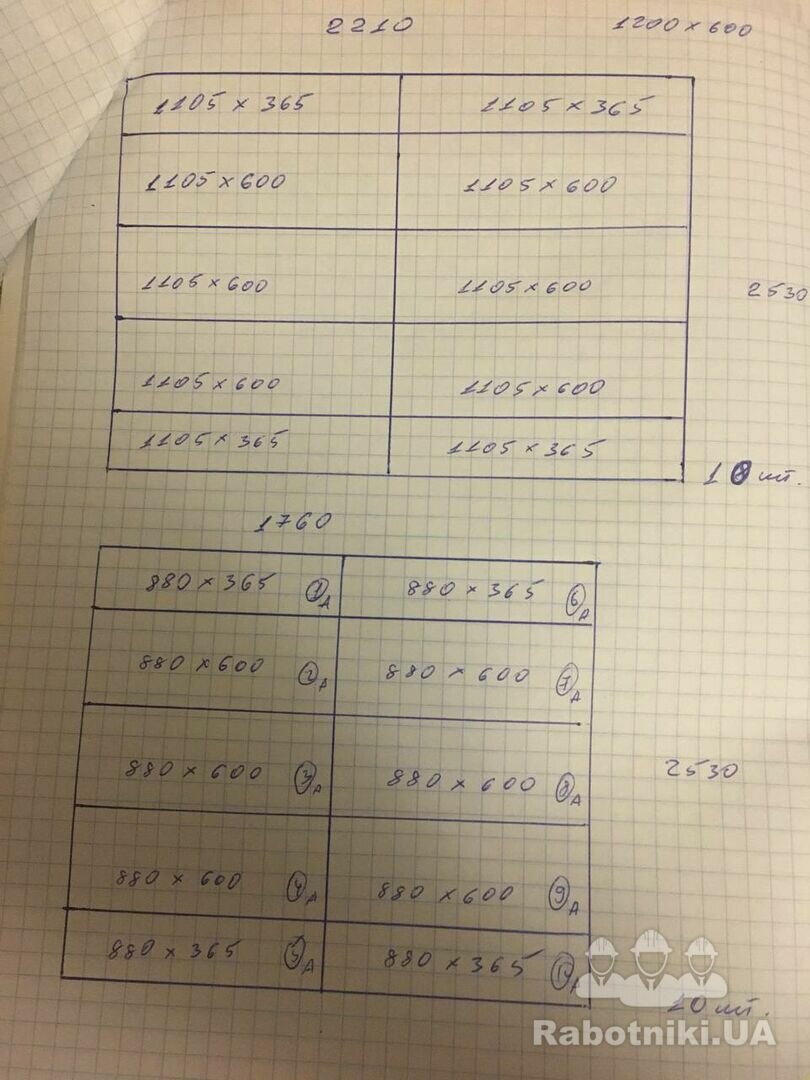 2210 1200 x 600
1105 x 365 1105 x 365
1105 x 600 1105 x 600
1105 x 600 1105 x 600
2530
1105 x 600 1105 x 600
1105 x 365 1105 x 365
10 шт.
1760
880 x 365 1А 880 x 365 6А
880 x 600 2А 880 x 600 7А
880 x 600 3А 880 x 600 8А
2530
880 x 600 4А 880 x 600 9А
880 x 365 5А 880 x 365 10А
10 шт.
Rabotniki.UA